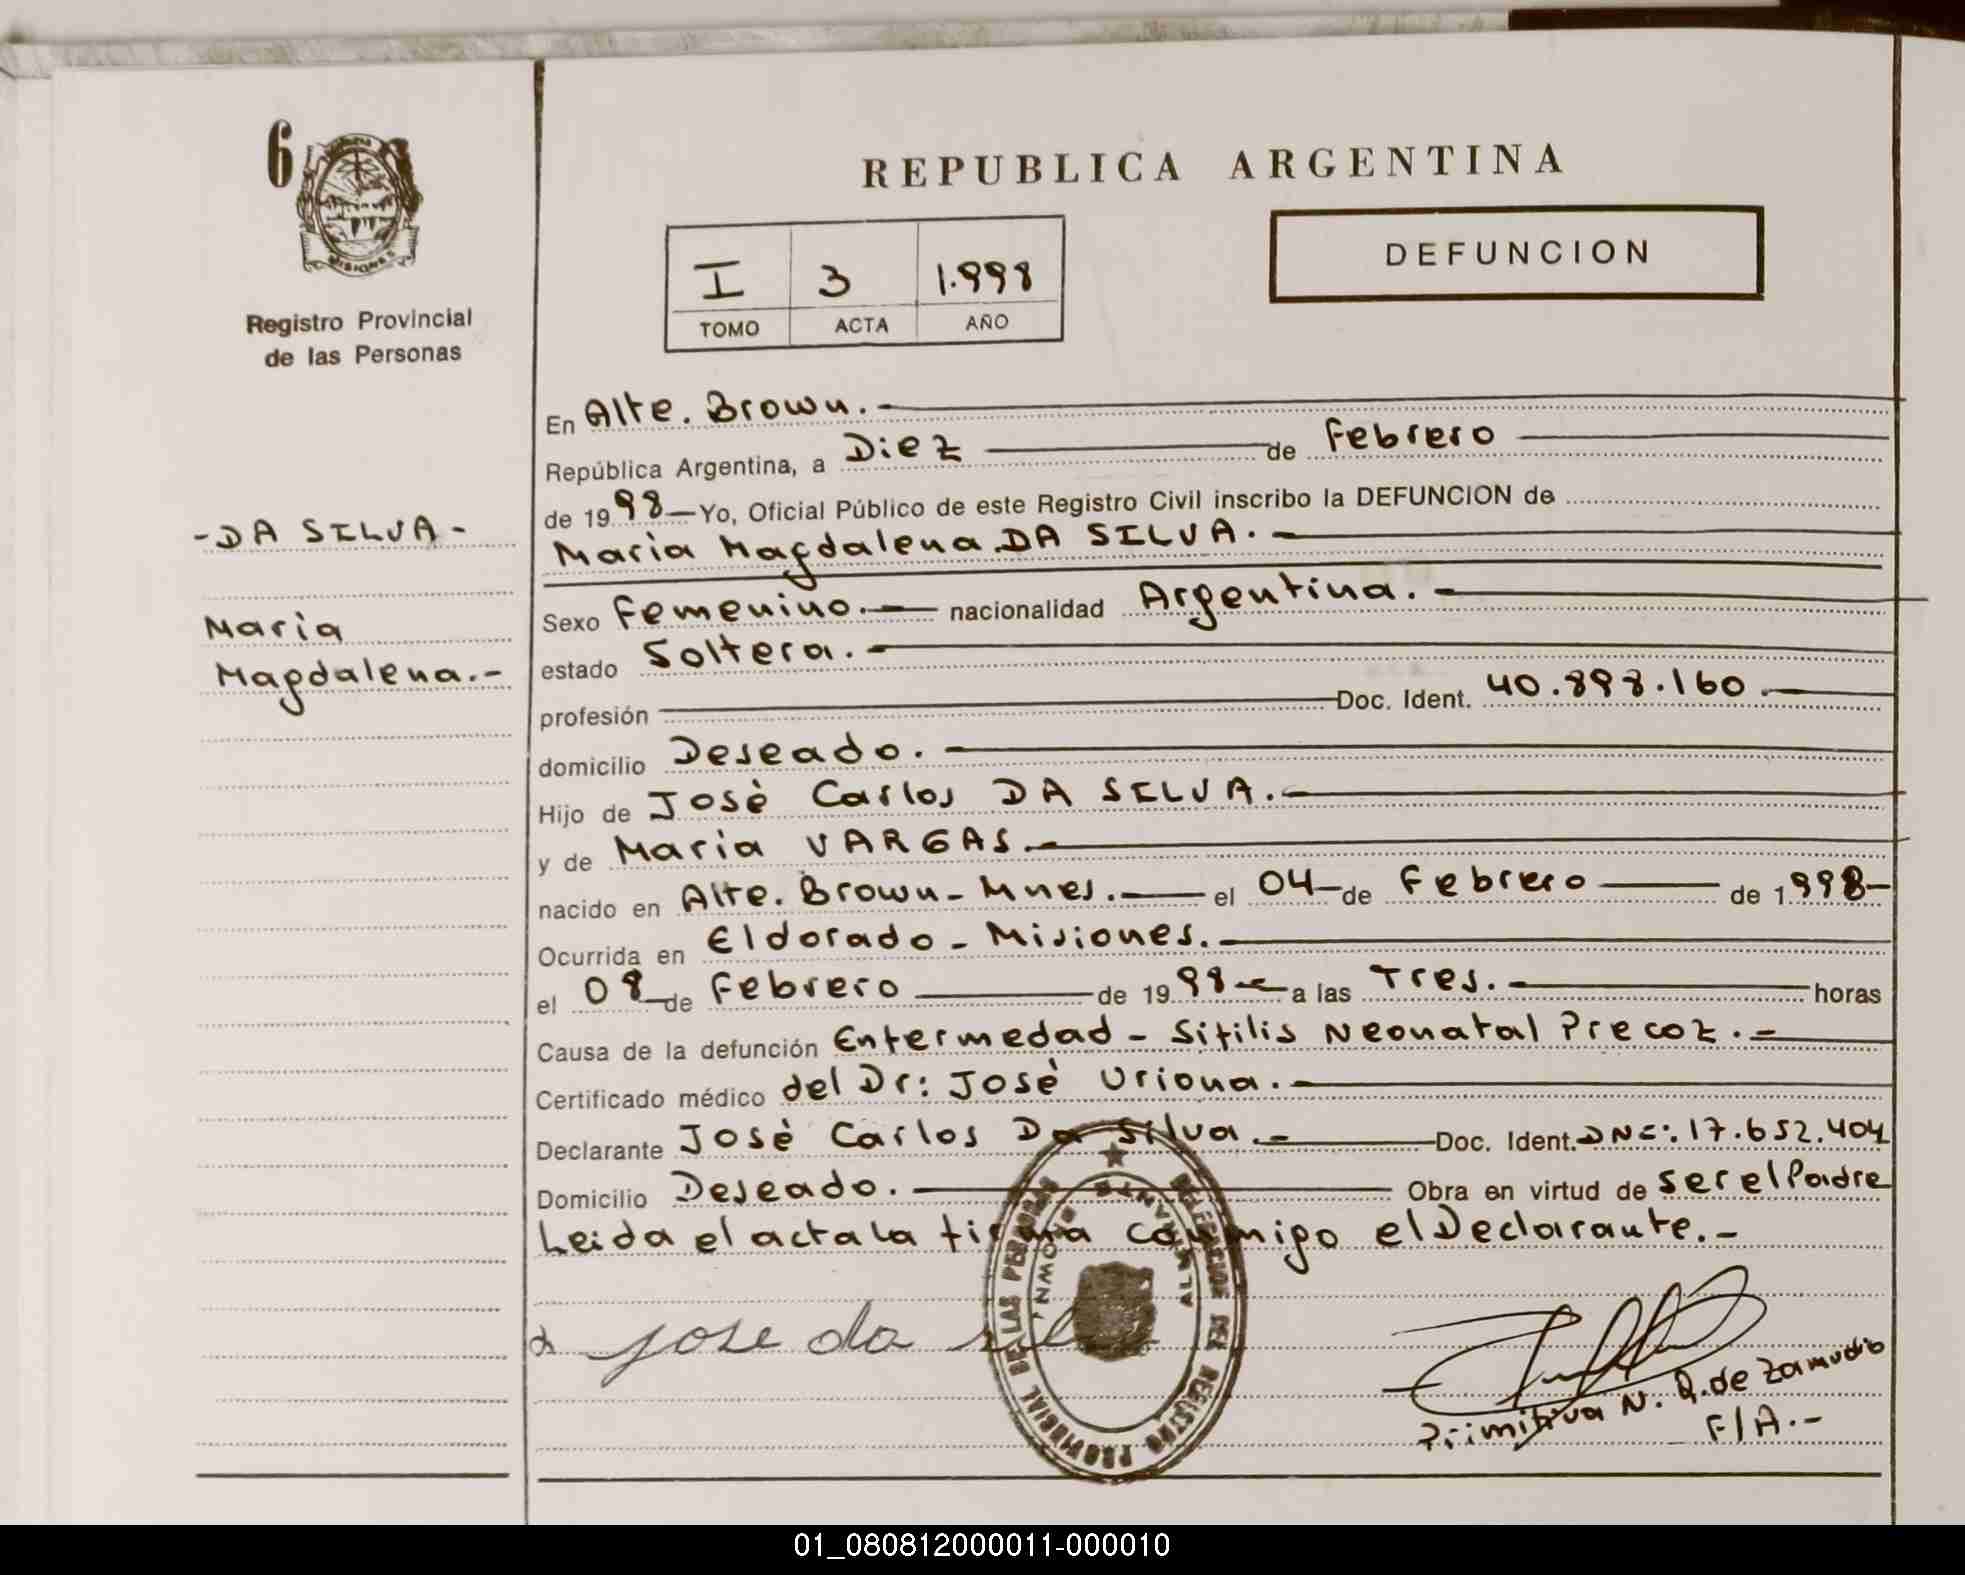 6
MISIONES
Registro Provincial
de las Personas
- DA SILVA -
Maria
Magdalena.-
REPUBLICA ARGENTINA
I 3 1.998
TOMO ACTA AÑO
DEFUNCION
En Alte. Brown.
República Argentina, a Diez de Febrero
de 1998 Yo, Oficial Público de este Registro Civil inscribo la DEFUNCION de
Maria Magdalena DA SILVA.
Sexo Femenino. nacionalidad Argentina.
estado Soltera.
profesión Doc. Ident. 40.898.160.
domicilio Deseado.
Hijo de José Carlos DA SILVA.
y de Maria VARGAS.
nacido en Alte. Brown - Mnes. el 04 de Febrero de 1998
Ocurrida en Eldorado - Misiones.
el 08 de Febrero de 1998 a las Tres. horas
Causa de la defunción Enfermedad - Sifilis Neonatal Precoz.
Certificado médico del Dr: José Uriona.
Declarante José Carlos Da Silva. Doc. Ident. DNI: 17.652.404
Domicilio Deseado. Obra en virtud de ser el Padre
Leida el acta la firma conmigo el Declarante.-
jose da sil
DELEGACION DEL REGISTRO PROVINCIAL DE LAS PERSONAS
ALMIRANTE BROWN
Primitiva N. Q. de Zamudio
F/A.-
01_080812000011-000010